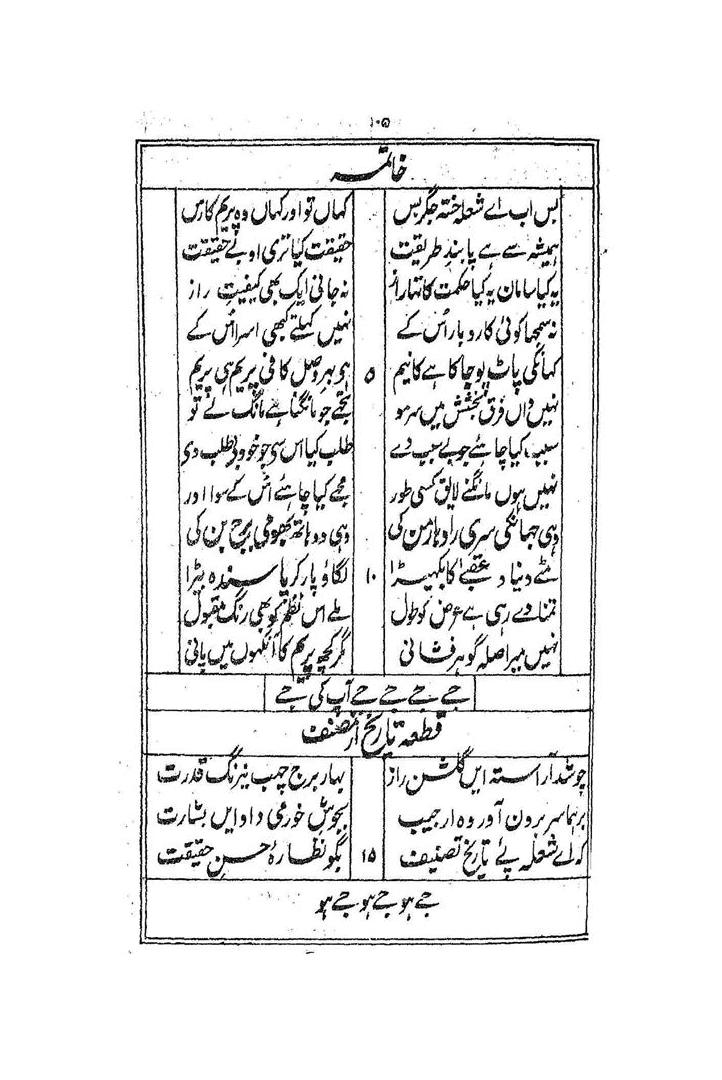 ۱۰۵
خاتمہ
بس اب اے شعلہ خستہ جگر بس کہاں تو اور کہاں وہ پریم کا رس
ہمیشہ سے ہے پابند طریقت حقیقت کیا تری او بے حقیقت
یہ کیا سامان یہ کیا حکمت کا تھا راز نہ جانی ایک بھی کیفیت راز
نہ سمجھا کوئی کاروبار اُس کے نہیں کھلتے کبھی اسرار اُس کے
کہانکی پاٹ پوجا کا ہے کا نیم ۵ ہو بہر وصل کافی پریم ہی پریم
نہیں واں فرق بخشش میں سرمو تجھے جو مانگنا ہے مانگ لے تو
سبب کیا چاہئے جو بے سبب دے طلب کیا اس سے جو خود بے طلب دے
نہیں ہوں مانگنے لایق کسی طور مجھے کیا چاہئے اُس کے سوا اور
وہی جھانکی سری رادہا رمن کی وہی دو ہاتھ بھومی برج بن کی
مٹے دنیا و عقبےٰ کا بکھیڑا ۱۰ لگاؤ پار کرپا سندہ بیڑا
تمنا دے رہی ہے عرض کو طول ملے اس نظم کو بھی رنگ مقبول
نہیں میرا صلہ گوہر فشانی مگر کچھ پریم کا آنکھوں میں پانی
جے جے جے جے جے آپ کی جے
قطعہ تاریخ از مصنف
چو شد آراستہ ایں گلشن راز بہار برج چب نیرنگ قدرت
برہما سر برون آورد ہ از جیب بجوش خورمی داد ایں بشارت
کہ اے شعلہ پئے تاریخ تصنیف ۱۵ بگو نظارۂ حسن حقیقت
جے ہو جے ہو جے ہو